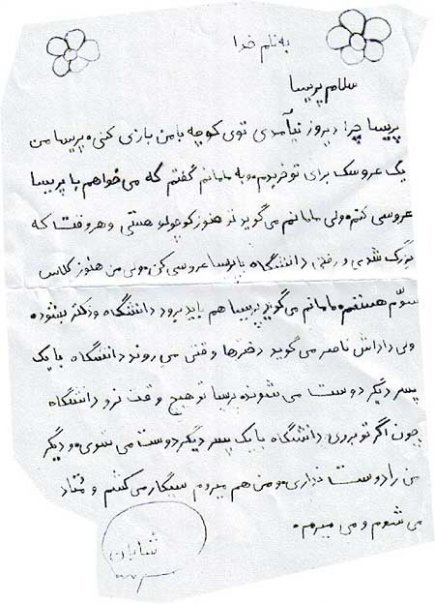 به نام خدا
سلام پریسا
پریسا چرا دیروز نیآمدی توی کوچه با من بازی کنی. پریسا من
یک عروسک برای تو خریدم. و به مامانم گفتم که می خواهم با پریسا
عروسی کنم. ولی مامانم می گوید تو هنوز کوچولو هستی و هر وقت که
بزرگ شدی و رفتی دانشگاه با پریسا عروسی کن. ولی من هنوز کلاس
سوّم هستم. مامانم می گوید پریسا هم باید برود دانشگاه و دکتر بشود.
ولی داداش ناصر می گوید دخترها وقتی می روند دانشگاه با یک
پسر دیگر دوست می شوند. پریسا تو هیچ وقت نرو دانشگاه
چون اگر تو بری دانشگاه با یک پسر دیگر دوست می شوی. و دیگر
من را دوست نداری. و من هم میروم سیگار می کشم و مُتاد
می شوم و می میرم.
شایان